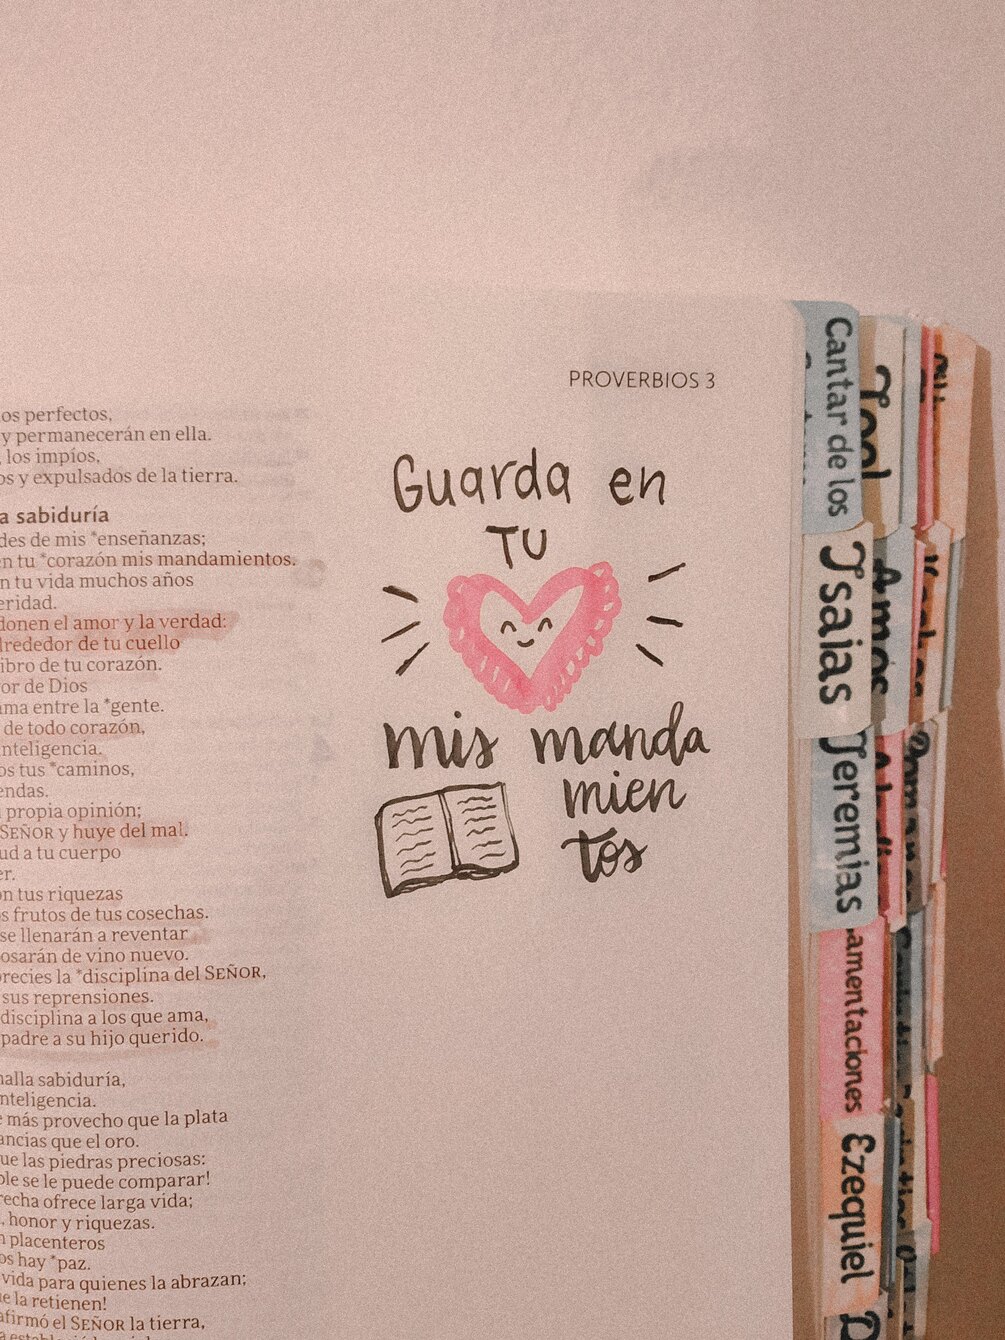 PROVERBIOS 3
os perfectos,
y permanecerán en ella.
los impíos,
os y expulsados de la tierra.
a sabiduría
des de mis *enseñanzas;
en tu *corazón mis mandamientos.
n tu vida muchos años
eridad.
donen el amor y la verdad:
alrededor de tu cuello
libro de tu corazón.
or de Dios
ama entre la *gente.
de todo corazón,
nteligencia.
os tus *caminos,
endas.
propia opinión;
SEÑOR y huye del mal.
ud a tu cuerpo
er.
on tus riquezas
s frutos de tus cosechas.
se llenarán a reventar
osarán de vino nuevo.
precies la *disciplina del SEÑOR,
sus reprensiones.
disciplina a los que ama,
padre a su hijo querido.
halla sabiduría,
nteligencia.
e más provecho que la plata
ancias que el oro.
que las piedras preciosas:
ble se le puede comparar!
recha ofrece larga vida;
, honor y riquezas.
n placenteros
os hay *paz.
vida para quienes la abrazan;
ue la retienen!
afirmó el SEÑOR la tierra,
Guarda en
TU
mis manda
mien
tos
Cantar de los
Isaias
Jeremias
amentaciones
Ezequiel
Joel
Amós